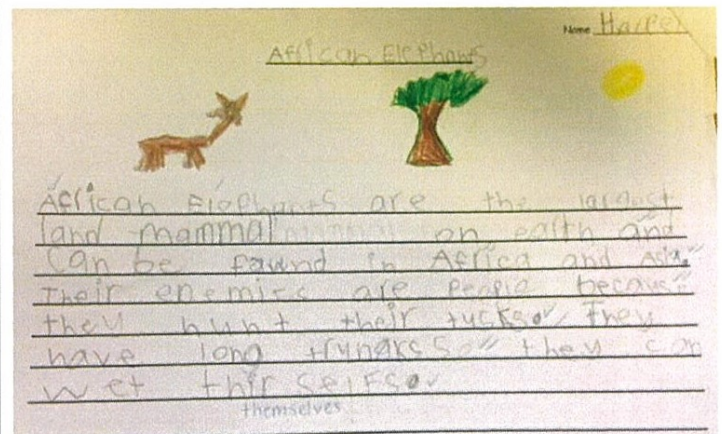 Name Harper
African Elephants
African Elephants are the largest
land mammal on earth and
Can be fawnd in Africa and Asia.
Their enemies are People because
they hunt their tucks. They
have long so they can
wet thir selfs.
themselves